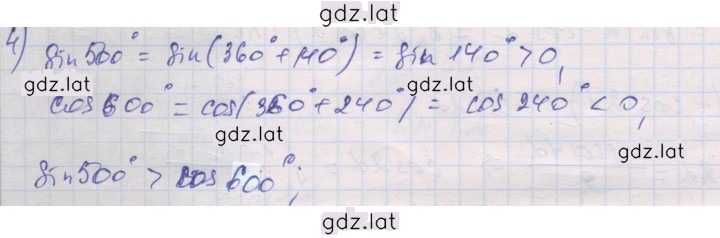 gdz.lat
4) sin500° = sin(360° + 140°) = sin 140° > 0,
gdz.lat gdz.lat
cos600° = cos(360° + 240°) = cos 240° < 0,
gdz.lat gdz.lat
sin500° > cos600°;
gdz.lat gdz.lat
gdz.lat